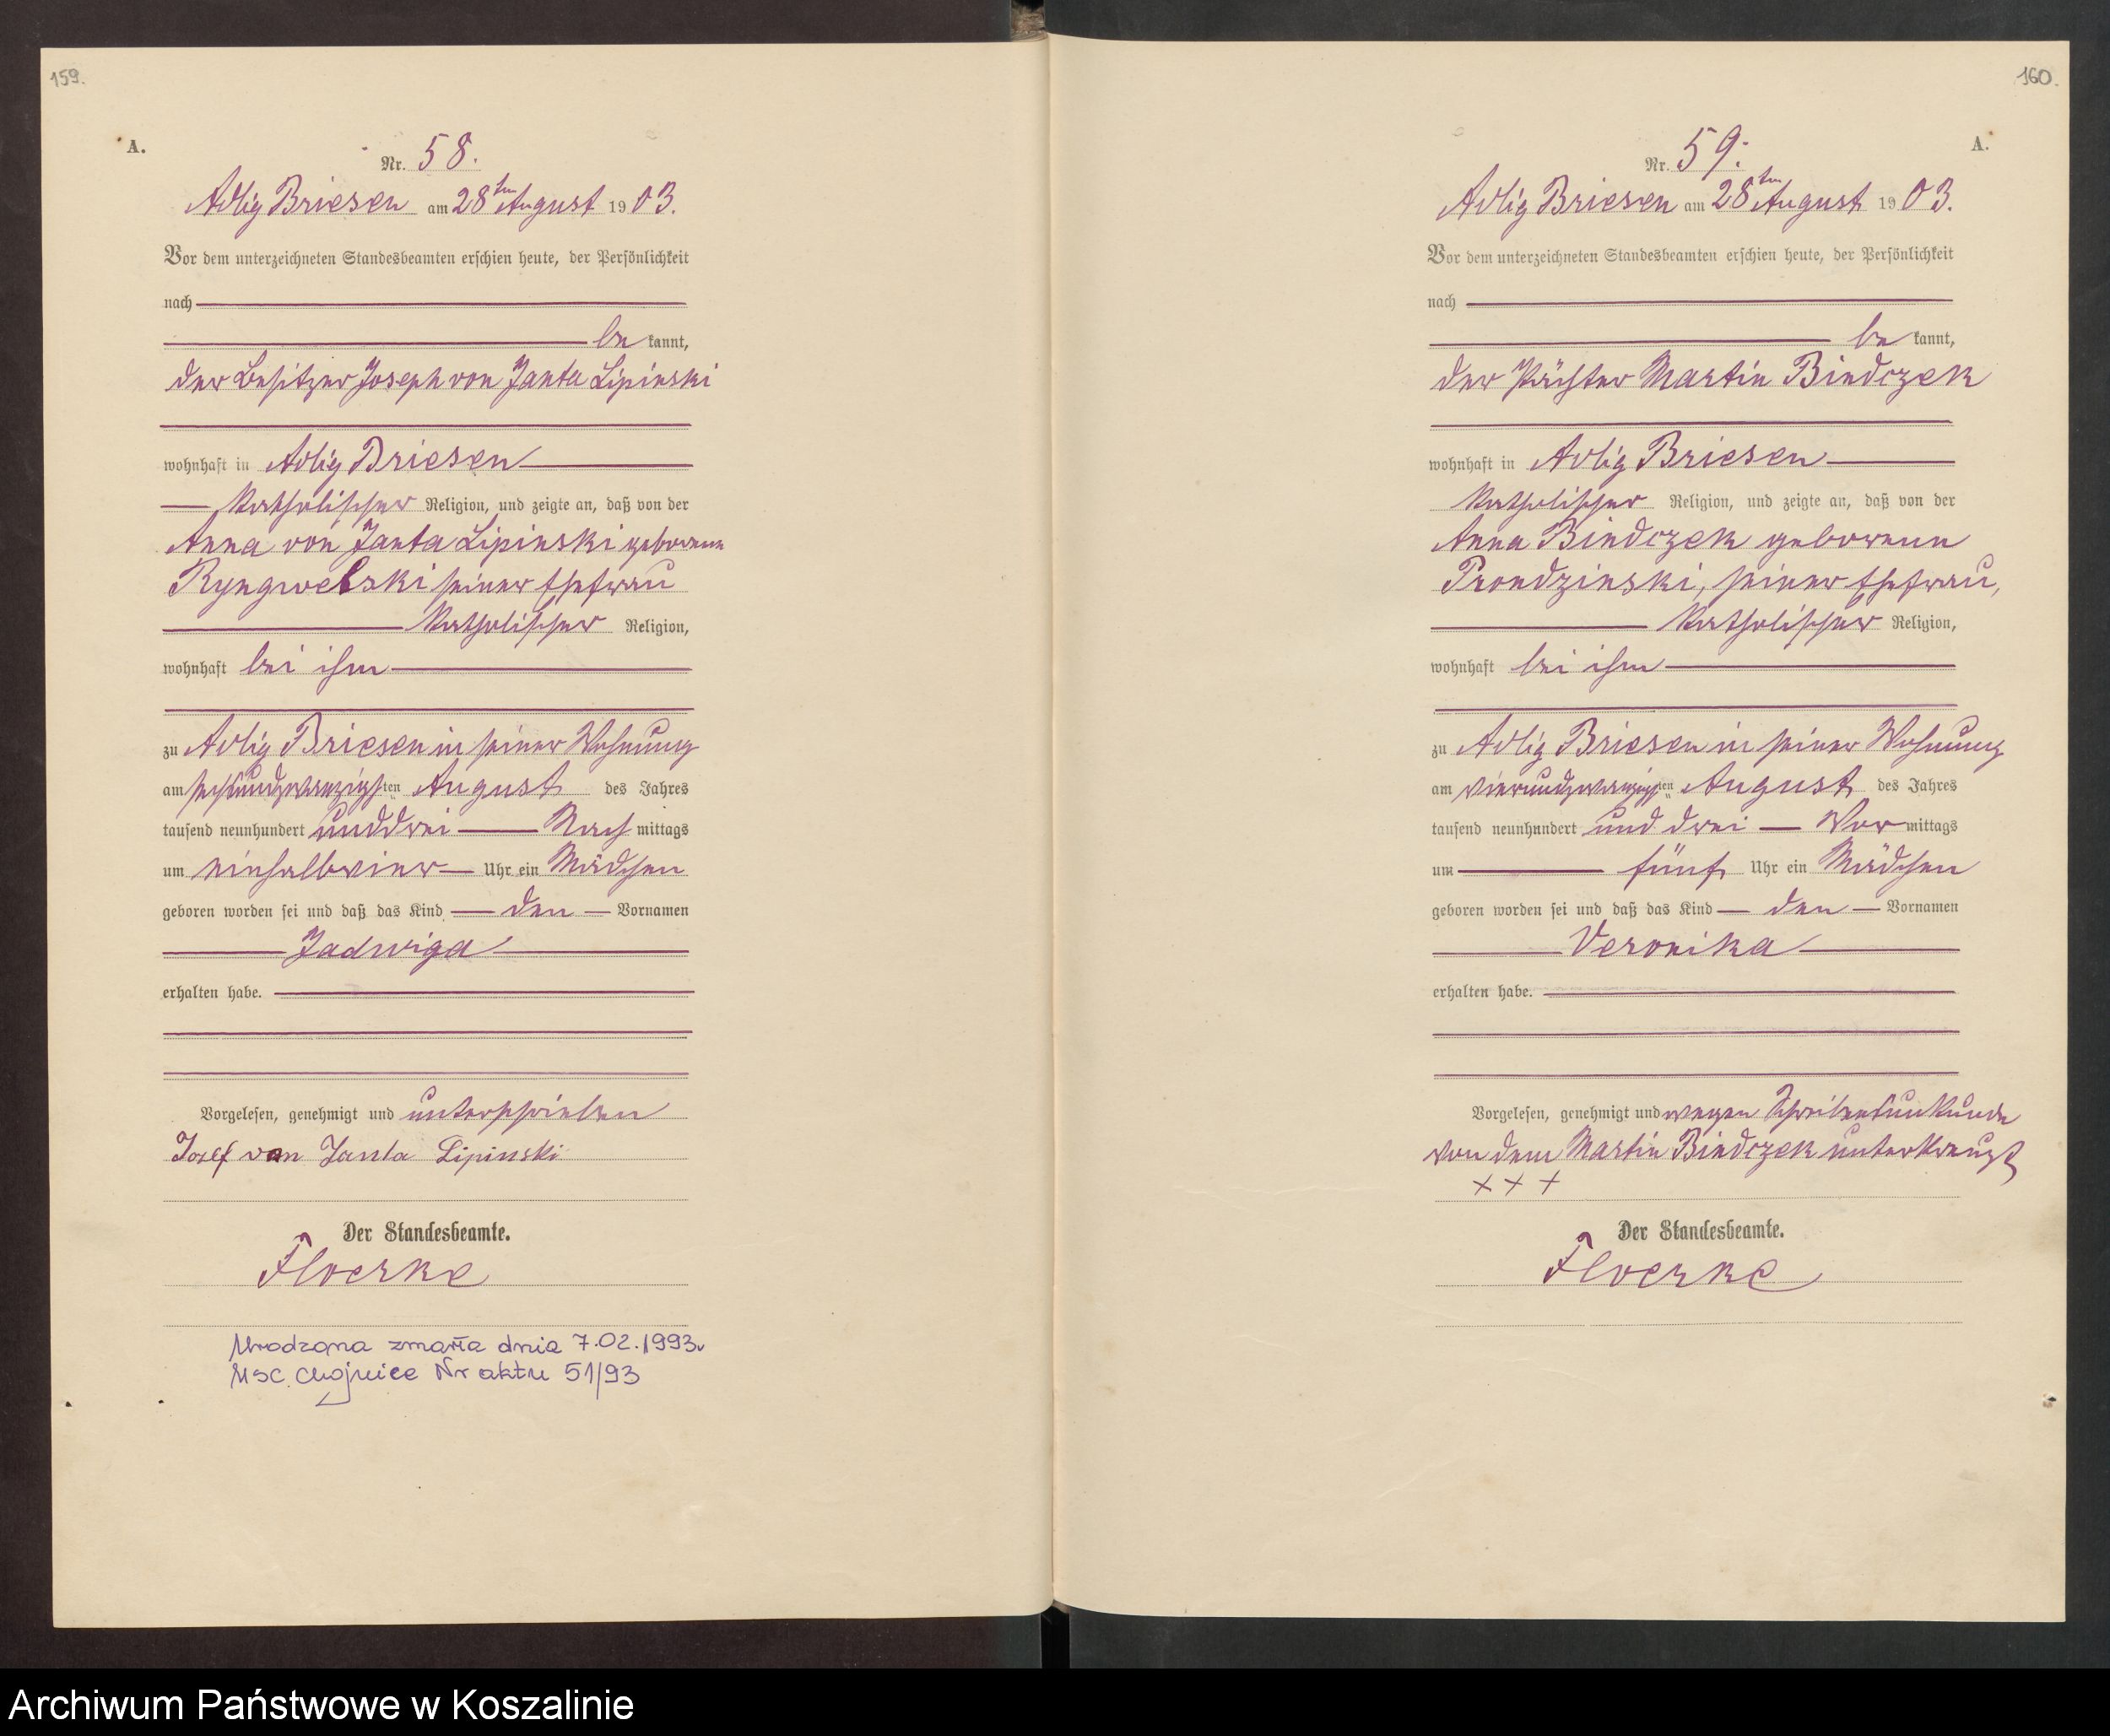 159.
A.
Nr. 58.
Adlig Briesen am 28ten August 1903.
Vor dem unterzeichneten Standesbeamten erschien heute, der Persönlichkeit
nach
be kannt,
der Besitzer Joseph von Janta Lipinski
wohnhaft in Adlig Briesen
katholischer Religion, und zeigte an, daß von der
Anna von Janta Lipinski geborenen
Ryngwelski seiner Ehefrau
katholischer Religion,
wohnhaft bei ihm
zu Adlig Briesen in seiner Wohnung
am sechsundzwanzigsten August des Jahres
tausend neunhundert und drei Nach mittags
um einhalbvier Uhr ein Mädchen
geboren worden sei und daß das Kind den Vornamen
Jadwiga
erhalten habe.
Vorgelesen, genehmigt und unterschrieben
Josef von Janta Lipinski
Der Standesbeamte.
Floerke
Urodzona zmarła dnia 7.02.1993r
USC. Chojnice Nr aktu 51/93
160.
A.
Nr. 59.
Adlig Briesen am 28ten August 1903.
Vor dem unterzeichneten Standesbeamten erschien heute, der Persönlichkeit
nach
be kannt,
der Pächter Martin Bindczek
wohnhaft in Adlig Briesen
katholischer Religion, und zeigte an, daß von der
Anna Bindczek geborenen
Prondzinski, seiner Ehefrau,
katholischer Religion,
wohnhaft bei ihm
zu Adlig Briesen in seiner Wohnung
am vierundzwanzigsten August des Jahres
tausend neunhundert und drei Vor mittags
um fünf Uhr ein Mädchen
geboren worden sei und daß das Kind den Vornamen
Veronika
erhalten habe.
Vorgelesen, genehmigt und wegen Schreibensunkunde
von dem Martin Bindczek unterkreuzt
+ + +
Der Standesbeamte.
Floerke
Archiwum Państwowe w Koszalinie